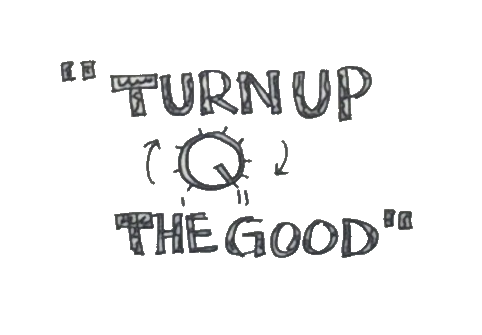 "TURN UP
THE GOOD"